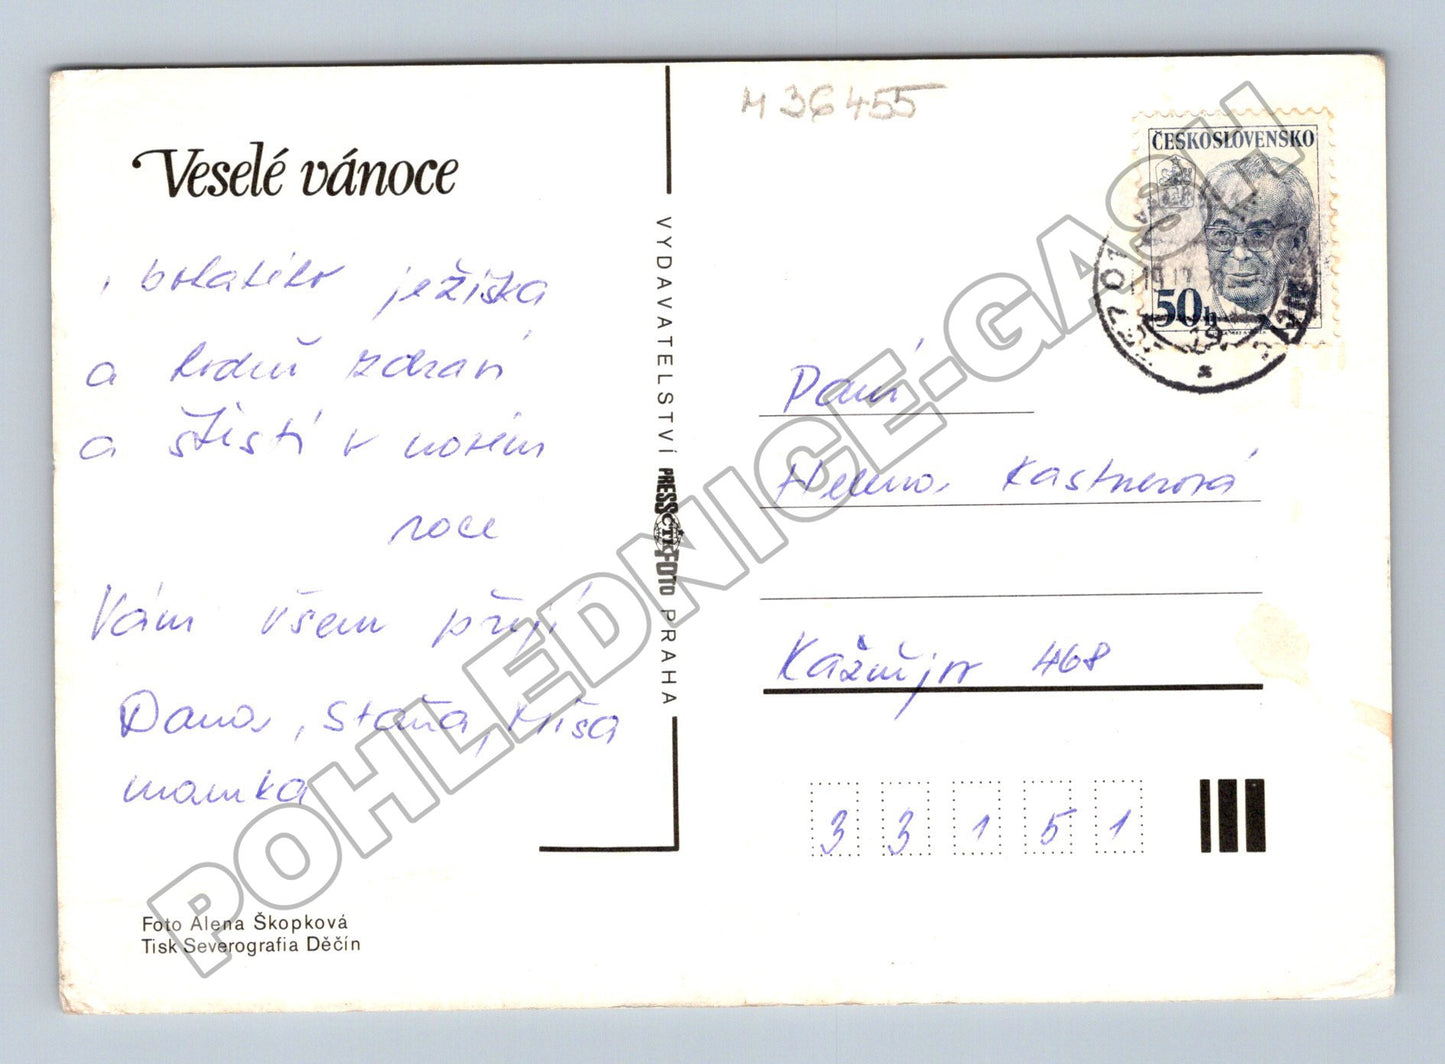 M 36455
Veselé vánoce
, bohatého ježíška
a hodně zdraví
a štěstí v novém
roce
Vám všem přejí
Dana, Staňa, Míša
mamka
Foto Alena Škopková
Tisk Severografia Děčín
VYDAVATELSTVÍ PRESSFOTO PRAHA
ČTK
ČESKOSLOVENSKO
50h
Paní
Helena Kastnerová
Kaznějov 468
3 3 1 5 1
POHLEDNICE-GASH